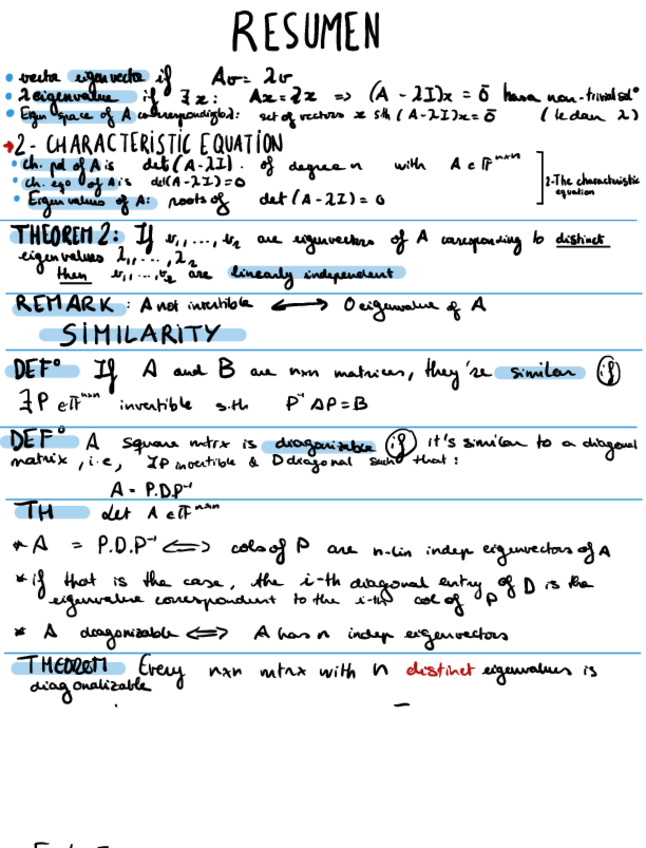 RESUMEN
• vector eigenvector if Av = λv
• λ eigenvalue if ∃x: Ax = λx => (A - λI)x = 0̄ has a non-trivial solº
• Eigen space of A correspondig to λ: set of vectors x s.th (A-λI)x = 0̄ ( le dan λ)
→ 2- CHARACTERISTIC EQUATION
• ch. pol of A is det(A-λI). of degree n with A ∈ 𝔽ⁿˣⁿ
• ch. eqo of A is det(A-λI)=0
• Eigen values of A: roots of det(A-λI) = 0
2-The characteristic equation
THEOREM 2: If v₁,..., v₂ are eigenvectors of A corresponding to distinct
eigenvalues λ₁,..., λ₂
then v₁,..., v₂ are linearly independent
REMARK : A not invertible <—> 0 eigenvalue of A
SIMILARITY
DEFº If A and B are nxn matrices, they're similar if
∃ P ∈ 𝔽ⁿˣⁿ invertible s.th P⁻¹AP = B
DEFº A square mtrx is diagonizable if it's similar to a diagonal
matrix, i.e, ∃P invertible & D diagonal such that:
A = P.D.P⁻¹
TH Let A ∈ 𝔽ⁿˣⁿ
* A = P.D.P⁻¹ <=> cols of P are n-lin indep eigenvectors of A
* if that is the case, the i-th diagonal entry of D is the
eigenvalue correspondent to the i-th col of P
* A diagonizable <=> A has n indep eigenvectors
THEOREM Every nxn mtrx with n distinct eigenvalues is
diagonalizable